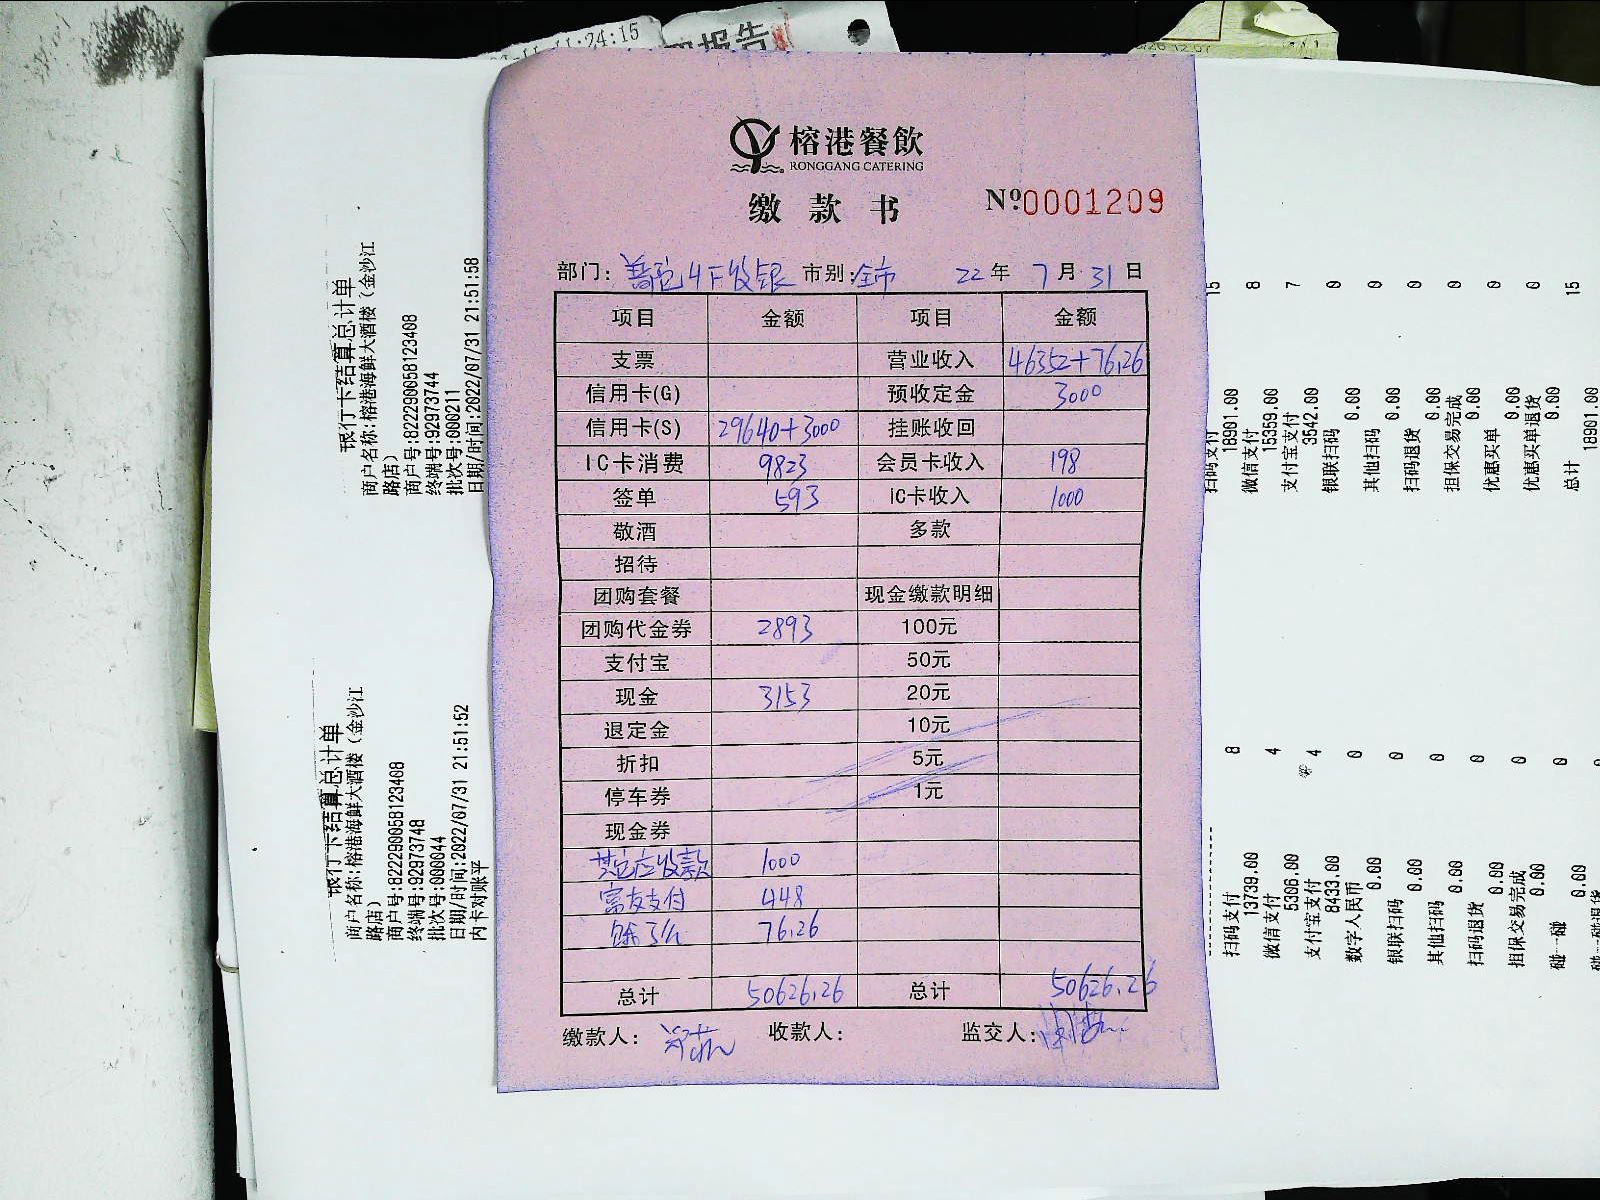 11:24:15
报告
榕港餐飲
RONGGANG CATERING
缴款书
№0001209
部门：普陀4F收银 市别：全市 22年7月31日
项目 金额 项目 金额
支票 营业收入 46352+76.26
信用卡(G) 预收定金 3000
信用卡(S) 29640+3000 挂账收回
IC卡消费 9823 会员卡收入 198
签单 593 IC卡收入 1000
敬酒 多款
招待
团购套餐 现金缴款明细
团购代金券 2893 100元
支付宝 50元
现金 3153 20元
退定金 10元
折扣 5元
停车券 1元
现金券
其它应收款 1000
富友支付 448
76.26
总计 50626.26 总计 50626.26
缴款人： 收款人： 监交人：
银行卡结算总计单
商户名称:榕港海鲜大酒楼（金沙江
路店）
商户号:822290058123408
终端号:92973744
批次号:000211
日期/时间:2022/07/31 21:51:58
扫码支付 15
18901.00
微信支付 8
15359.00
支付宝支付 7
3542.00
银联扫码 0
0.00
其他扫码 0
0.00
扫码退货 0
0.00
担保交易完成 0
0.00
优惠买单 0
0.00
优惠买单退货 0
0.00
总计 15
18901.00
银行卡结算总计单
商户名称:榕港海鲜大酒楼（金沙江
路店）
商户号:822290058123408
终端号:92973748
批次号:000044
日期/时间:2022/07/31 21:51:52
内卡对账平
扫码支付 8
13739.00
微信支付 4
5306.00
支付宝支付 4
8433.00
数字人民币 0
0.00
银联扫码 0
0.00
其他扫码 0
0.00
扫码退货 0
0.00
担保交易完成 0
0.00
碰一碰 0
0.00